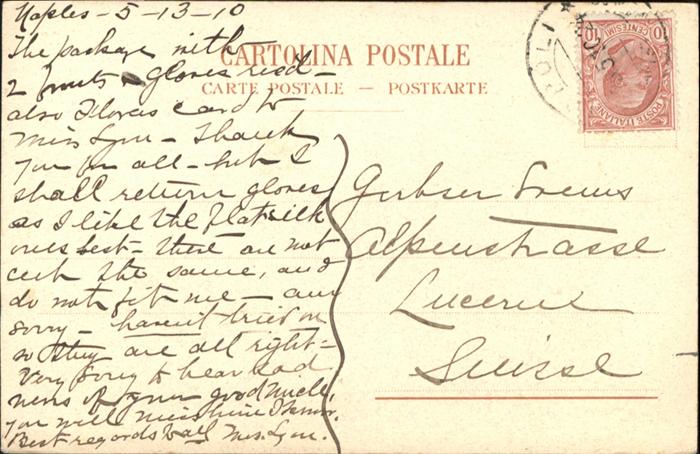 Naples - 5 - 13 - 10
The package with
2 & gloves rec'd -
also card to
Miss Lyon - Thank
you for all - but I
shall return gloves
as I like the flat silk
ones best - these are not
cut the same, and
do not fit me - am
sorry - haven't tried on
so they are all right -
Very sorry to hear sad
news of your good Uncle,
you will miss him I know.
Best regards to all Mrs. Lyon.
CARTOLINA POSTALE
CARTE POSTALE — POSTKARTE
POSTE ITALIANE
CENTESIMI
10
10
Alpenstrasse
Lucerne
Suisse